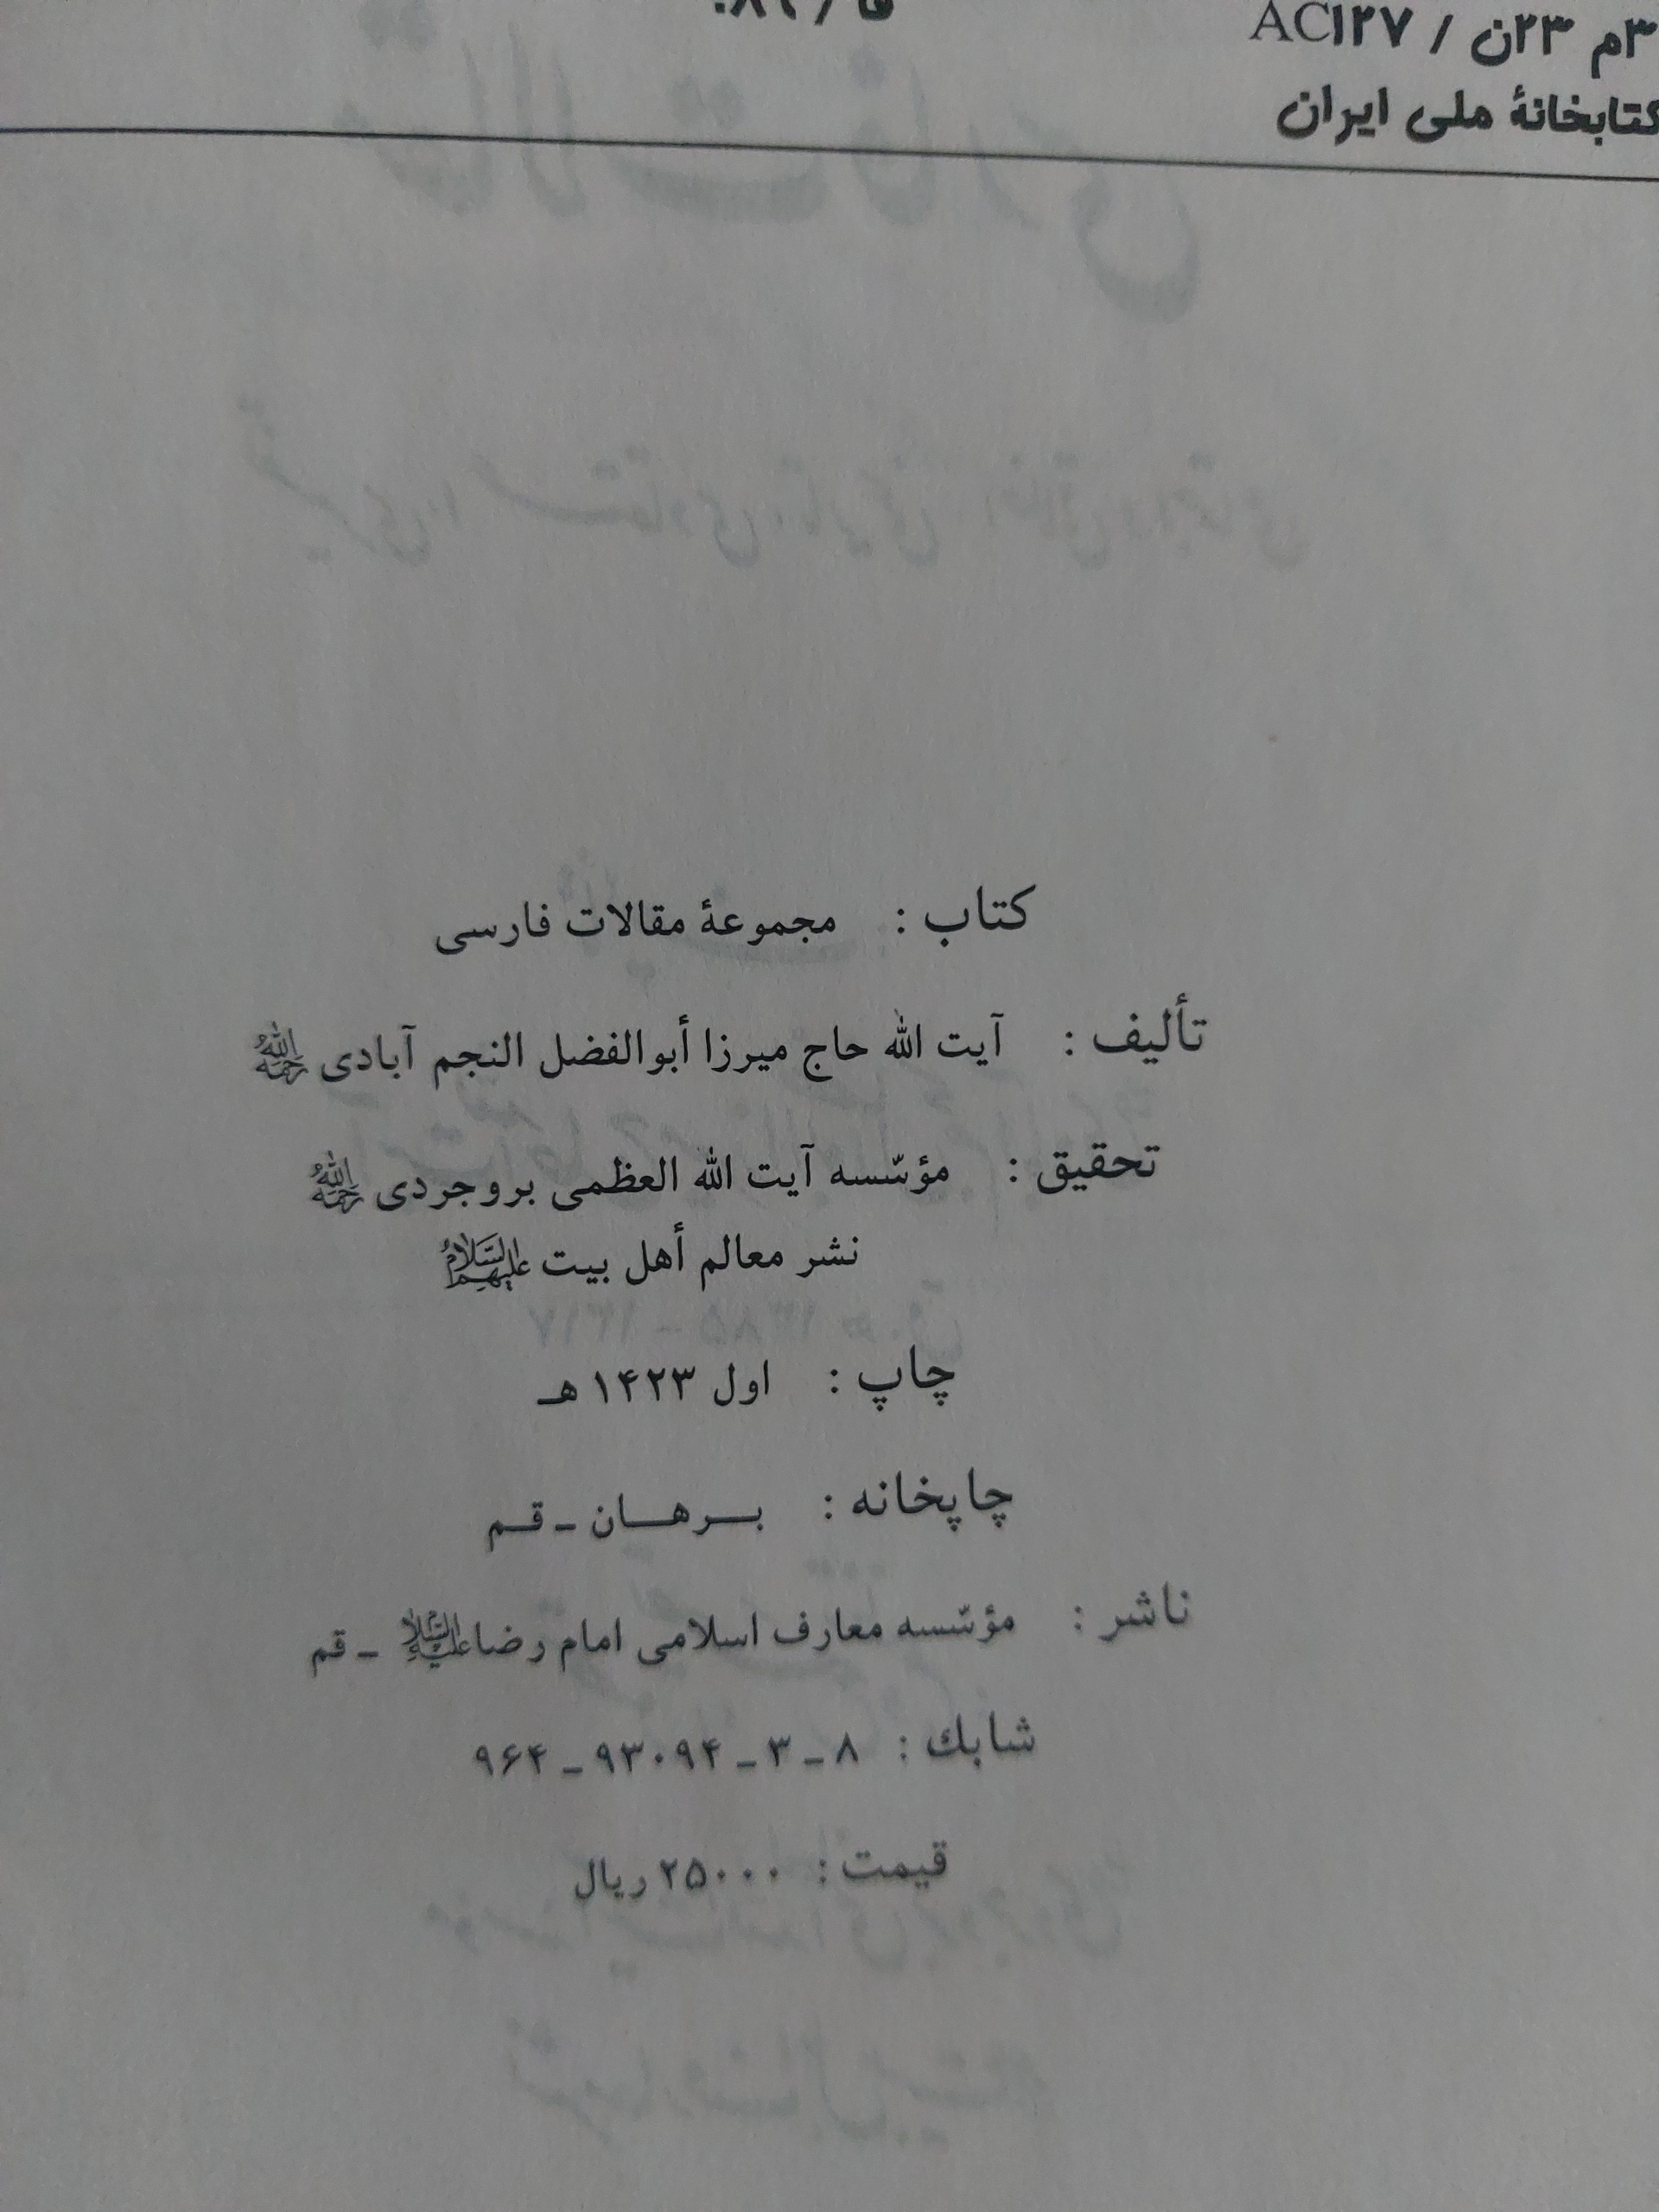 ۳م ۲۳ن / AC۱۲۷
کتابخانهٔ ملی ایران
کتاب : مجموعهٔ مقالات فارسی
تألیف : آیت الله حاج میرزا أبوالفضل النجم آبادی رحمه الله
تحقیق : مؤسّسه آیت الله العظمی بروجردی رحمه الله
نشر معالم أهل بیت علیهم السلام
چاپ : اول ۱۴۲۳ هـ
چاپخانه : برهان ـ قم
ناشر : مؤسّسه معارف اسلامی امام رضا علیه السلام ـ قم
شابك : ۸ ـ ۳ ـ ۹۳۰۹۴ ـ ۹۶۴
قیمت : ۲۵۰۰۰ ریال